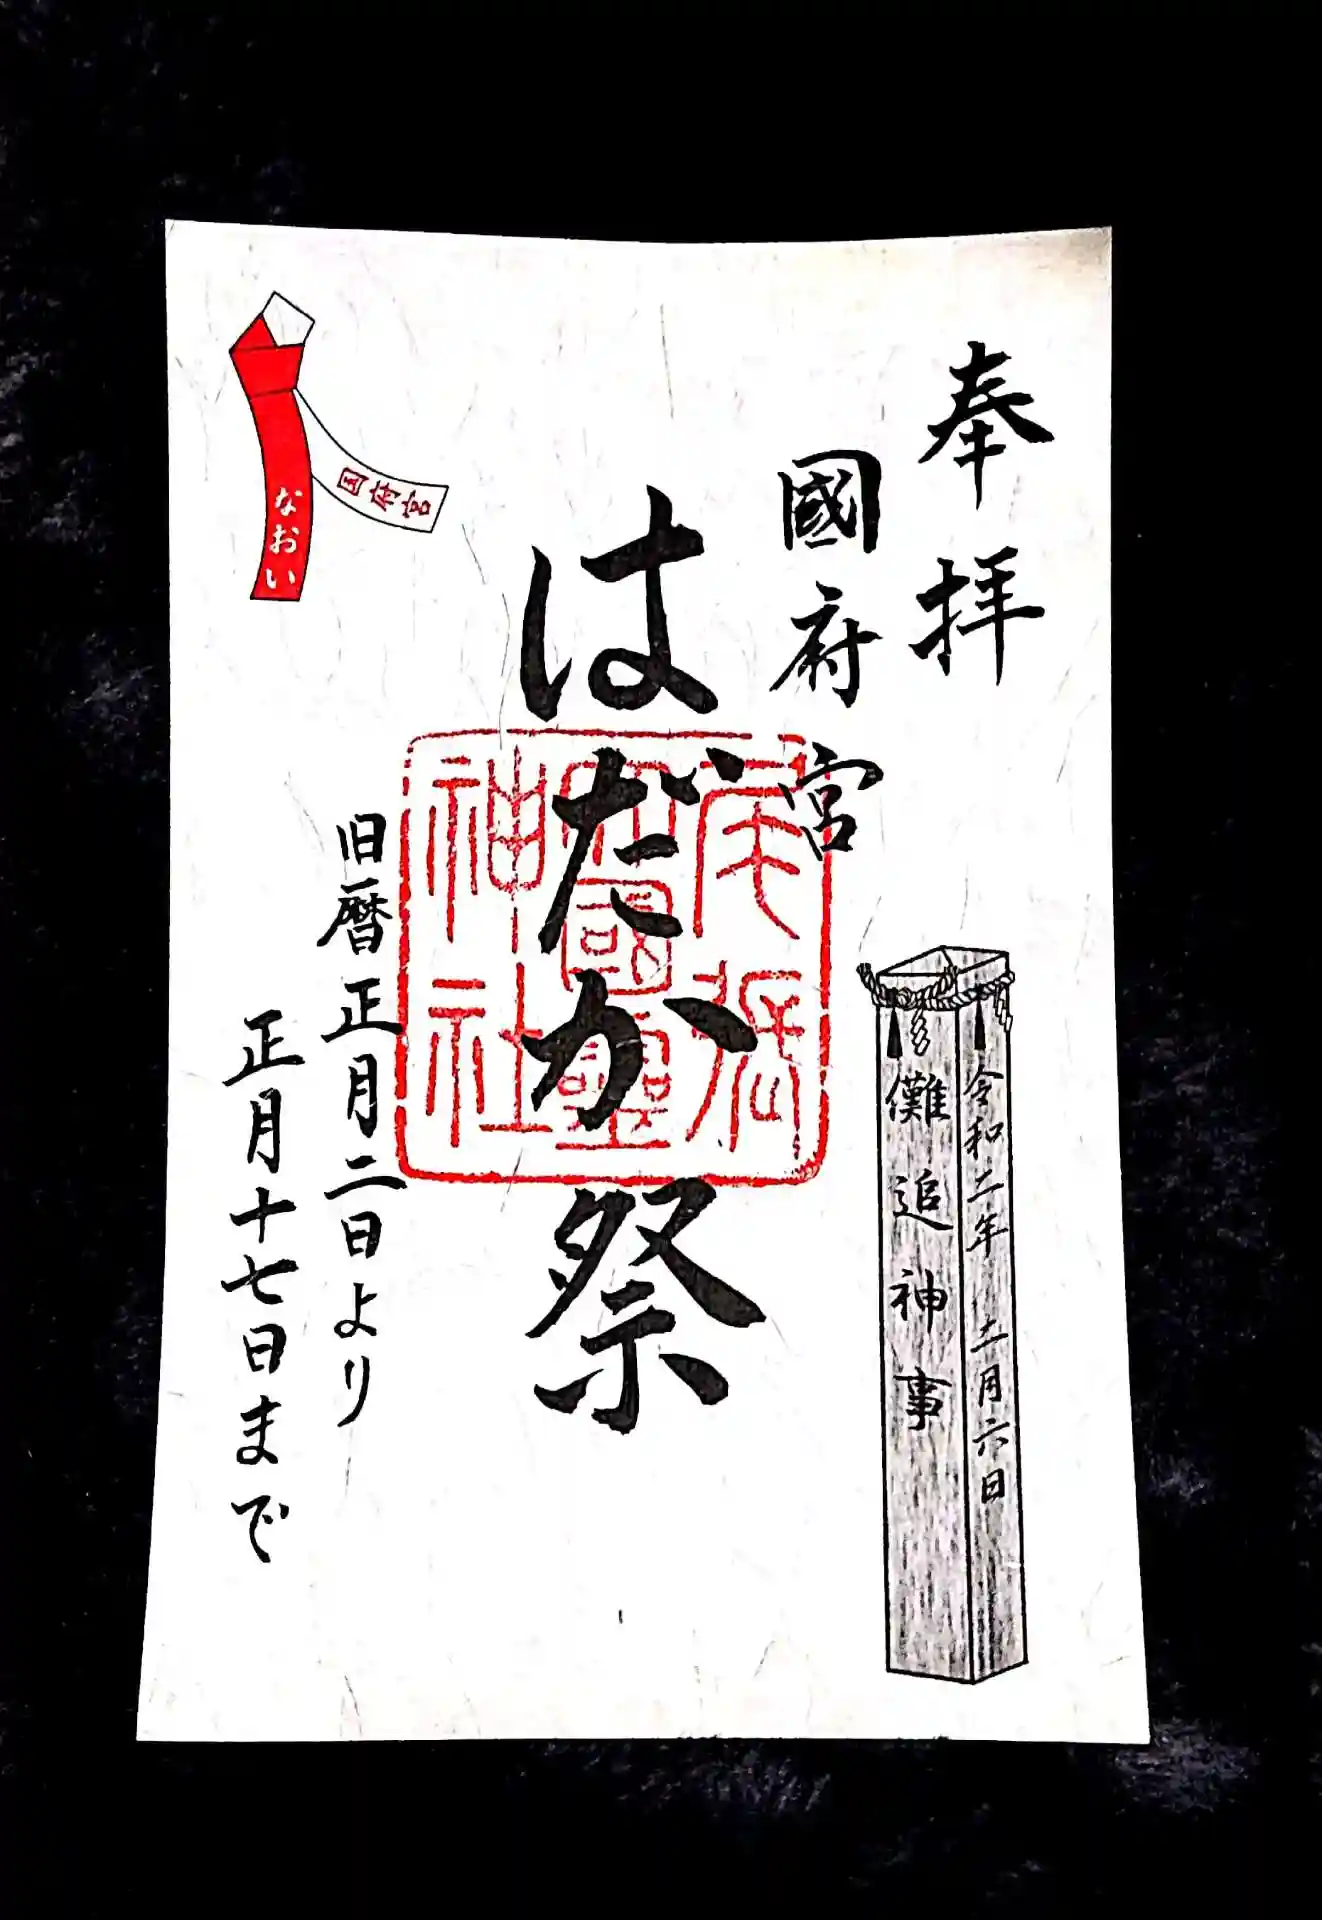 奉拝
國府宮
令和二年 二月六日
儺追神事
はだか祭
尾張
大國霊
神社
旧暦正月二日より
正月十七日まで
国府宮
なおい